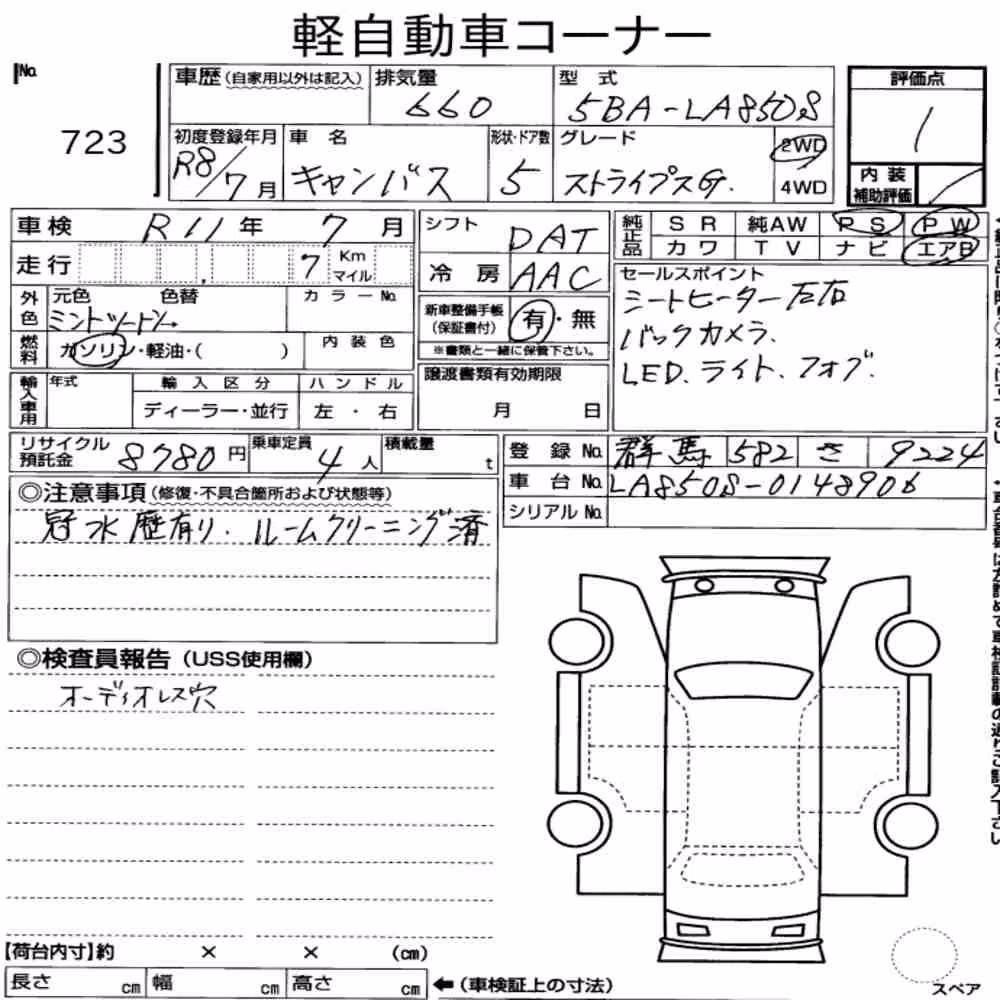 軽自動車コーナー
No. 723
車歴(自家用以外は記入) 排気量 660 型式 5BA-LA850S 評価点 1
初度登録年月 R8/7月 車名 キャンバス 形状・ドア数 5 グレード ストライプスG. 2WD 4WD
内装補助評価
車検 R11年 7月 シフト DAT 純正品 SR 純AW PS PW
カワ TV ナビ エアB
走行 7 Km マイル 冷房 AAC
外色 元色 色替 カラーNo.
新車整備手帳(保証書付) 有・無
※書類と一緒に保管下さい。
セールスポイント
シートヒーター左右
バックカメラ.
LED.ライト.フォグ.
燃料 ガソリン・軽油・( ) 内装色
輸入車用 年式 輸入区分 ハンドル
ディーラー・並行 左・右
譲渡書類有効期限
月 日
リサイクル預託金 8780円 乗車定員 4人 積載量 t
登録No. 群馬 582 さ 9224
車台No. LA850S-0148906
シリアルNo.
◎注意事項(修復・不具合箇所および状態等)
冠水歴有り. ルームクリーニング済
◎検査員報告(USS使用欄)
オーディオレス穴
【荷台内寸】約 × × (cm)
長さ cm 幅 cm 高さ cm ←(車検証上の寸法)
スペア